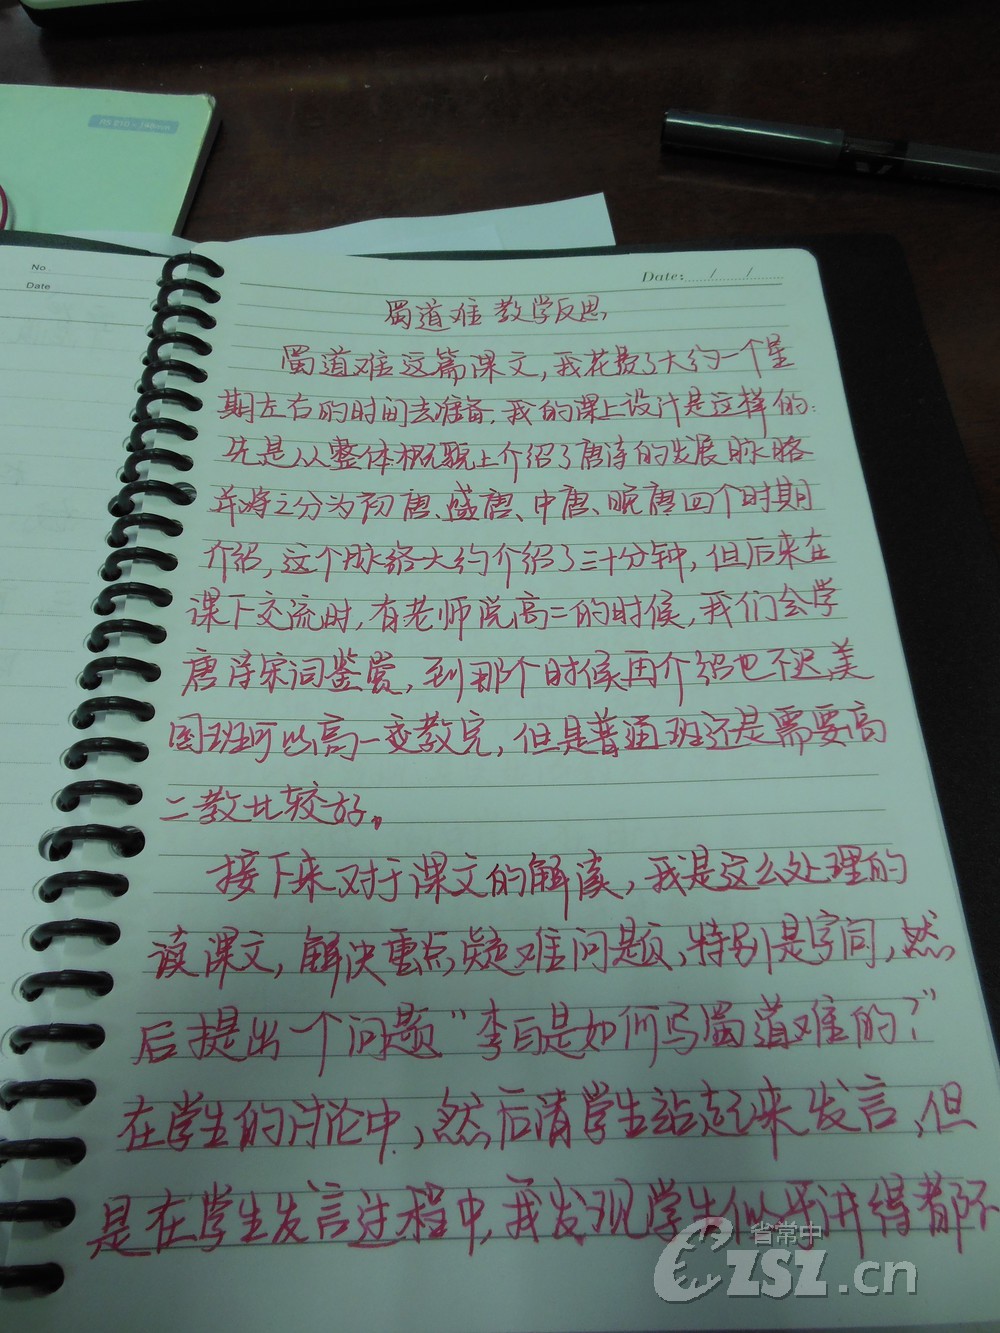 No
Date
Date: / /
蜀道难教学反思
蜀道难这篇课文，我花费了大约一个星
期左右的时间去准备，我的课上设计是这样的：
先是从整体概貌上介绍了唐诗的发展脉略
并将之分为初唐、盛唐、中唐、晚唐四个时期
介绍，这个脉络大约介绍了三十分钟，但后来在
课下交流时，有老师说高二的时候，我们会学
唐诗宋词鉴赏，到那个时候再介绍也不迟，美
国班可以高一变教完，但是普通班还是需要高
二教比较好。
接下来对于课文的解读，我是这么处理的
读课文，解决重点疑难问题，特别是字词，然
后提出一个问题“李白是如何写蜀道难的？”
在学生的讨论中，然后请学生站起来发言，但
是在学生发言过程中，我发现学生似乎讲得都不
省常中
CZSZ.cn